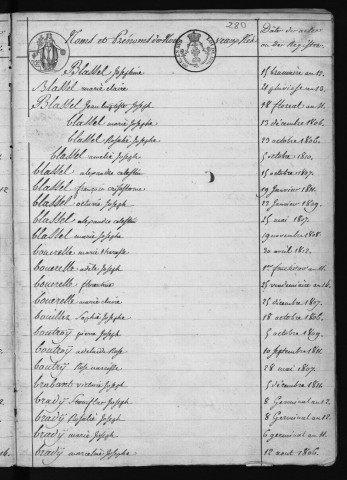 280
Noms et Prénoms des Nouveaux Nés
Date des actes
ou des Registres
Blassel Josephine 15 brumaire an 12.
Blassel marie claire
Blassel Jean baptiste Joseph 18 floreal an 11.
blassel marie Josephe 13 décembre 1806.
blassel Rosalie Josephe 23 octobre 1806.
blassel amelie Joseph 5 octobre 1810.
blassel alexandre celestin 15 octobre 1807.
blassel françois 19 Janvier 1811.
blassel octavie Joseph 23 Janvier 1809.
blassel alexandre celestin 25 mai 1807.
blassel marie Josephe 19 novembre 1808.
bouerelle marie therese 20 avril 1812.
bouerelle adele Joseph 1er fructidor an 11.
bouerelle florentine 25 vendemiaire an 14.
bouerelle marie claire 25 décembre 1807.
bouillez Sophie Joseph 18 octobre 1806.
boutroy pierre Joseph 5 octobre 1809.
boutroÿ adelaide Rose 10 septembre 1811.
boutrÿ Rose 28 mai 1807.
brabant victoire Joseph 5 décembre 1814.
bradÿ Joseph 8 Germinal an 12.
bradÿ Rosalie Joseph 8 Germinal an 12.
bradÿ marie Joseph 6 germinal an 11.
bradÿ marceline Joseph 12 aout 1806.